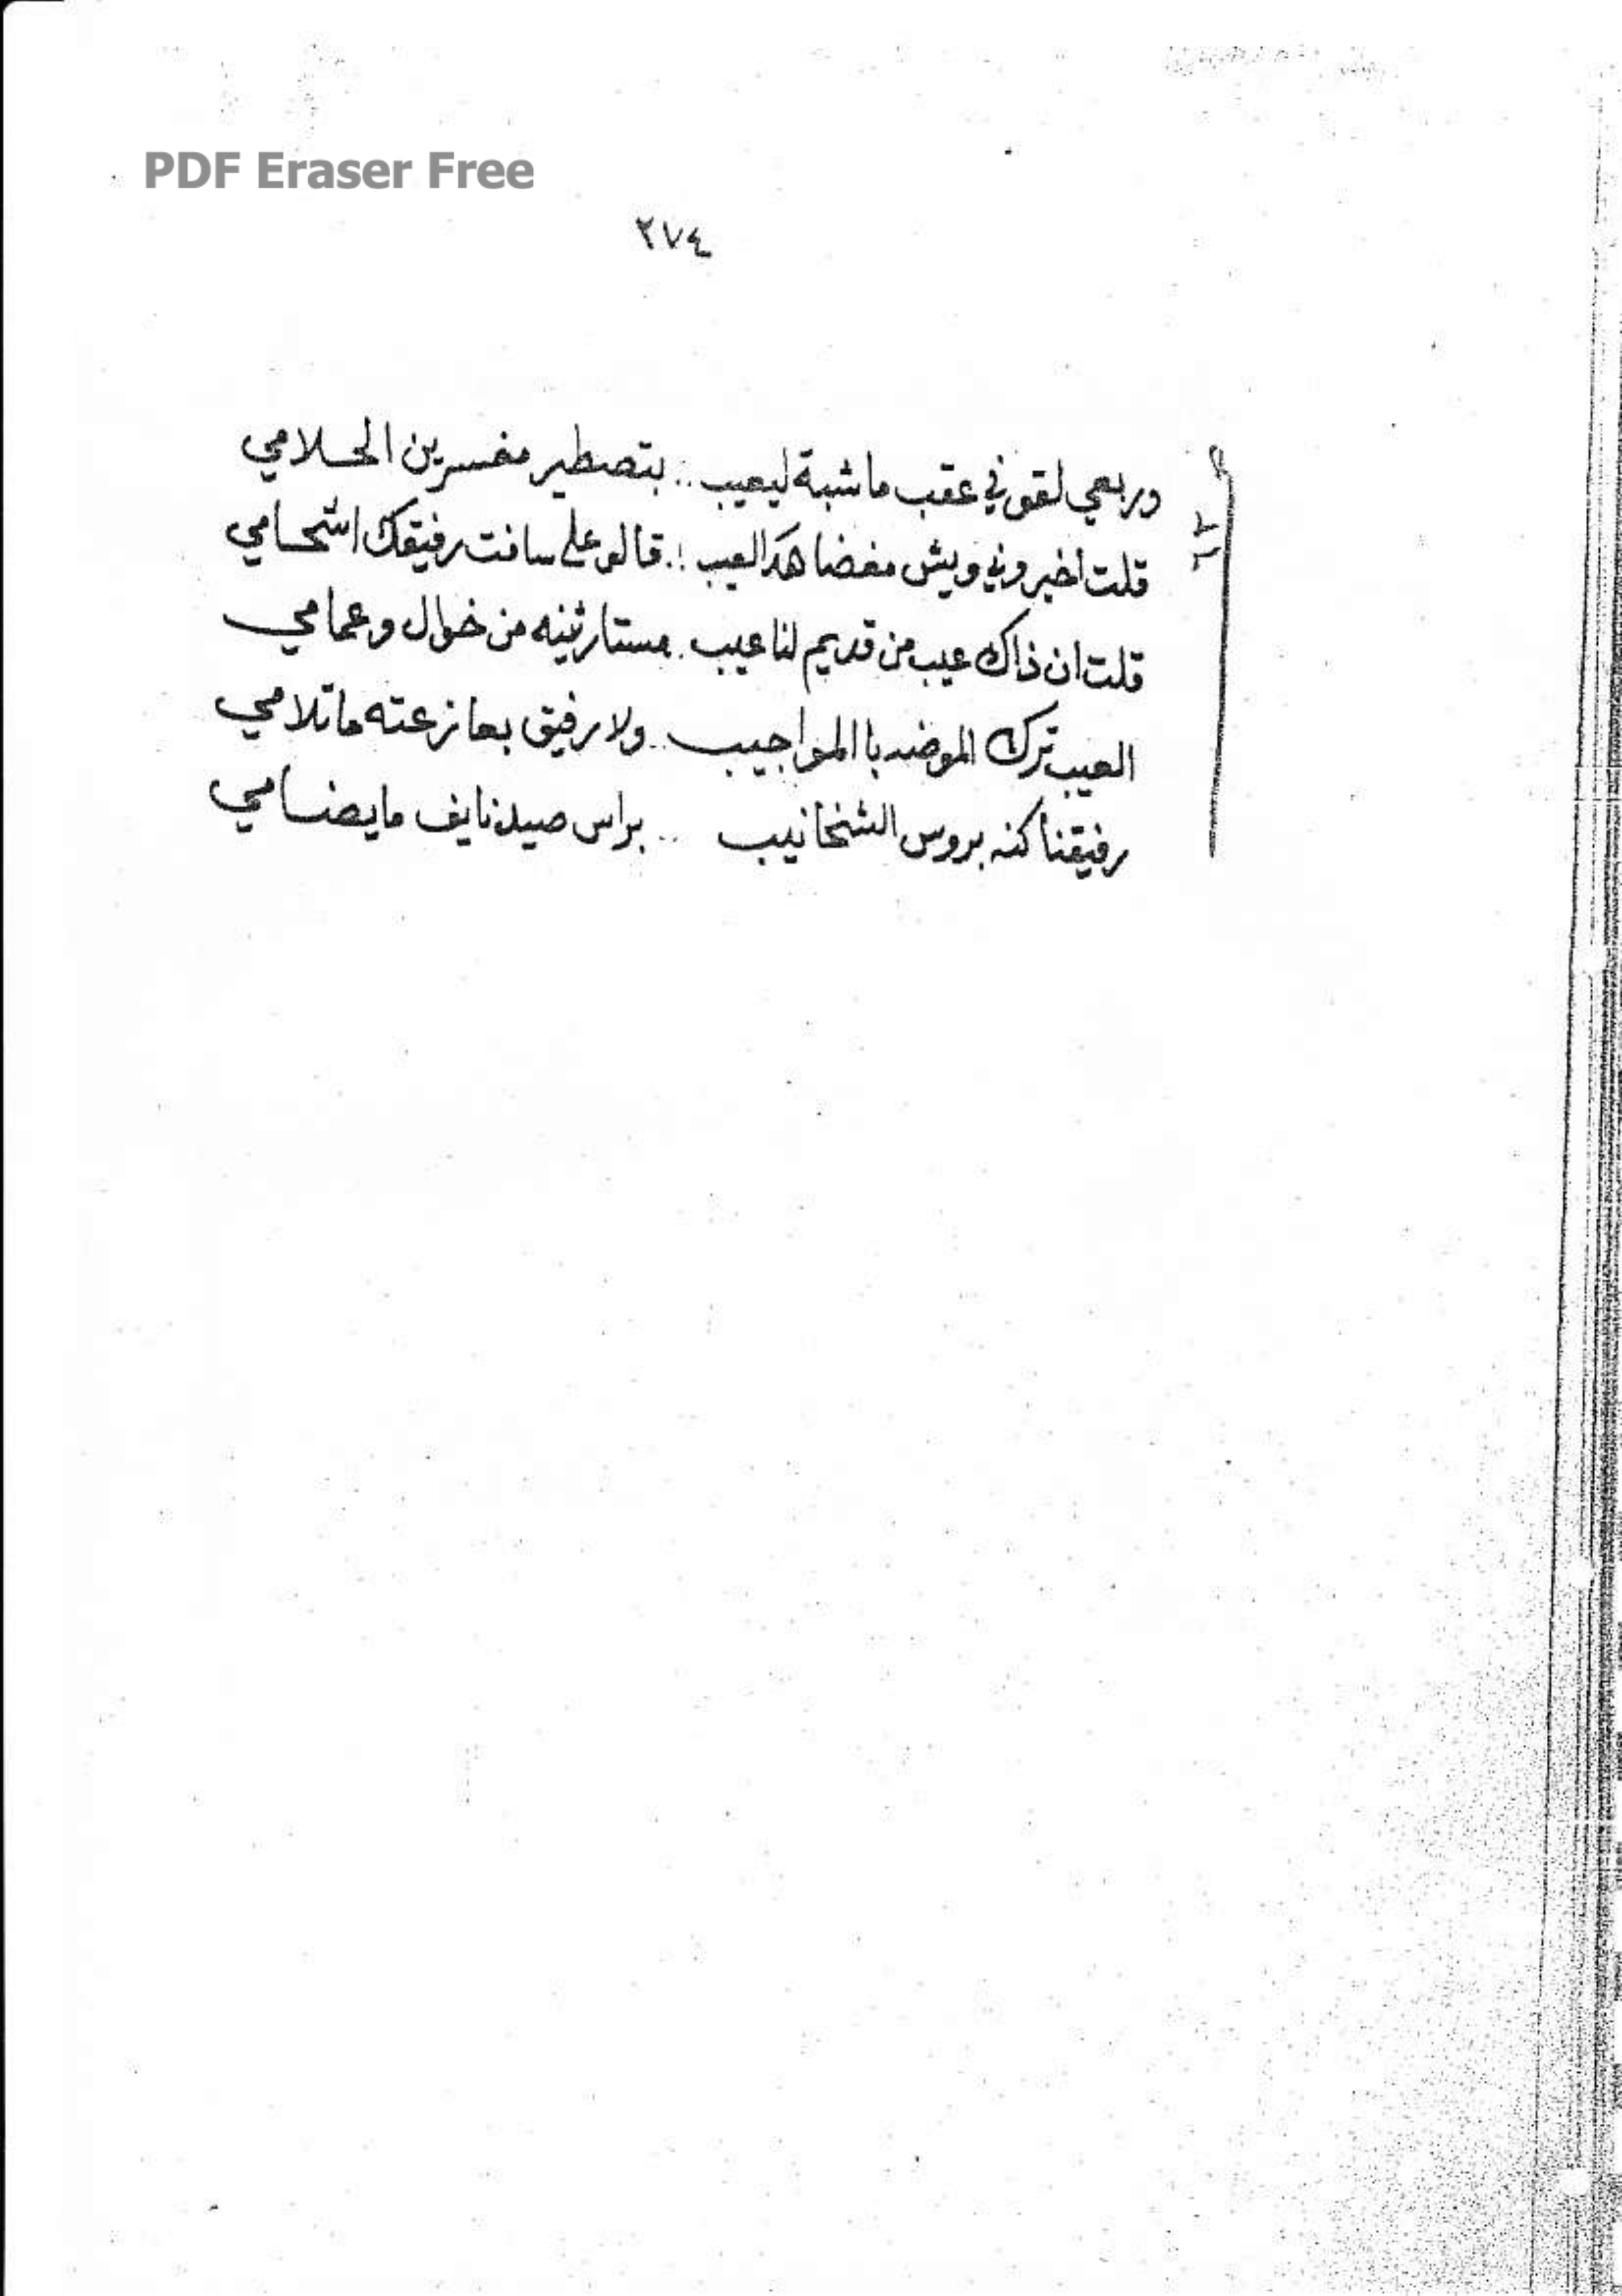 PDF Eraser Free
٢٧٤
وربعي لقوني عقب ماشبة ليعيب .. بتصطير مفسرين الحلامي
قلت اخبروني ويش مفضا هكالعيب .. قالو على سافت رفيقك اتحامي
قلت ان ذاك عيب من قديم لنا عيب . مستارثينه من خوال وعمامي
العيب ترك الموضد باالمواجيب .. ولا رفيق بعازعته ماتلامي
رفيقنا كنه بروس الشخانيب .. براس صيد نايف مايضامي